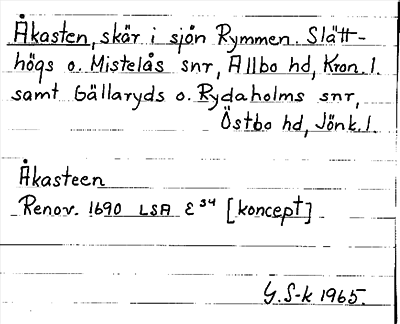 Åkasten, skär i sjön Rymmen. Slätt-
högs o. Mistelås snr, Allbo hd, Kron. l.
samt Gällaryds o. Rydaholms snr,
Östbo hd, Jönk. l.
Åkasteen
Renov. 1690 LSA E³⁴ [koncept]
G. S-k 1965.